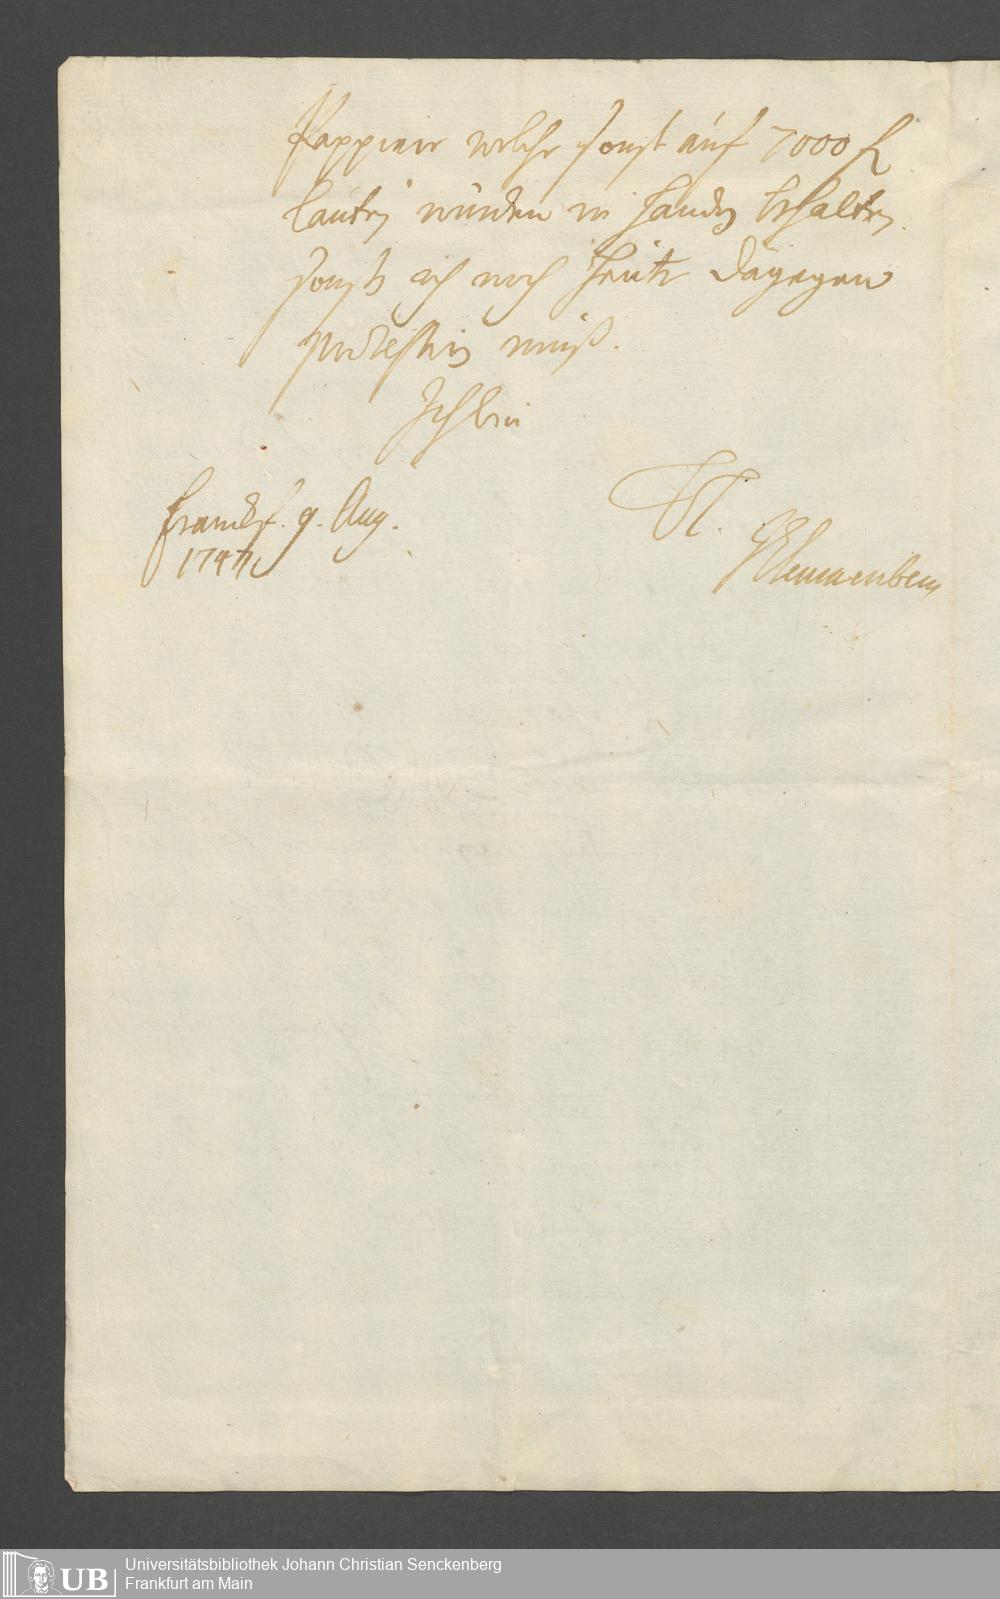 Pappieur welche sonst auf 7000 fl
lauten würden in handen behalten,
sonst ich noch heute dagegen
protestiren muß.
Ich bin
Franckf. 9. Aug.
174
Universitätsbibliothek Johann Christian Senckenberg
Frankfurt am Main
UB